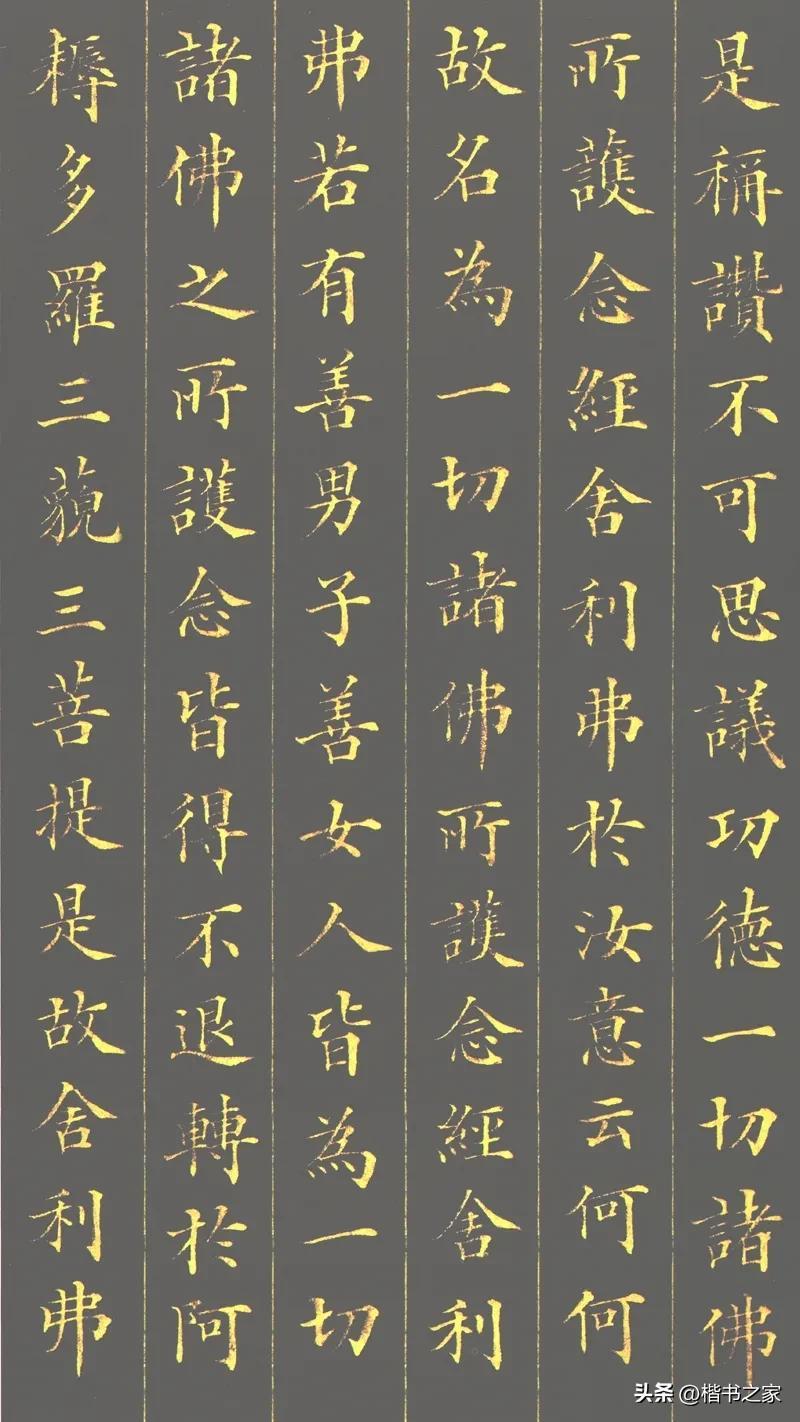 是稱讚不可思議功德一切諸佛
所護念經舍利弗於汝意云何何
故名為一切諸佛所護念經舍利
弗若有善男子善女人皆為一切
諸佛之所護念皆得不退轉於阿
耨多羅三藐三菩提是故舍利弗
头条 @楷书之家